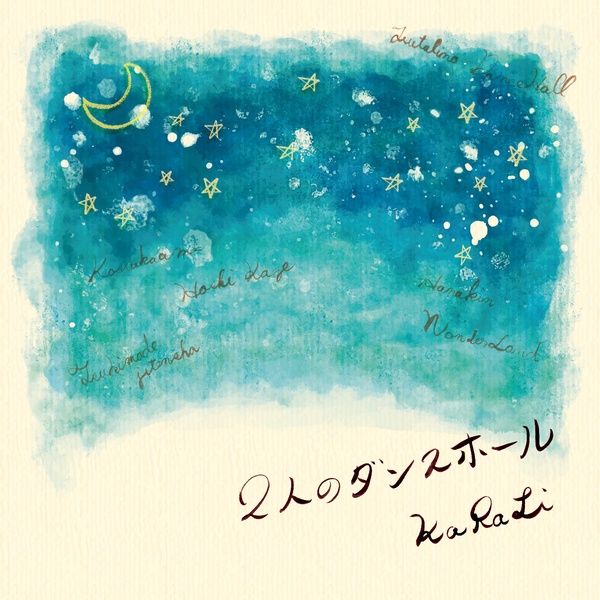 Futatsuno Dance Hall
Hachi Kaze
Hanakin
WonderLand
Tsukimade
jitensha
2人のダンスホール
KaRaLi